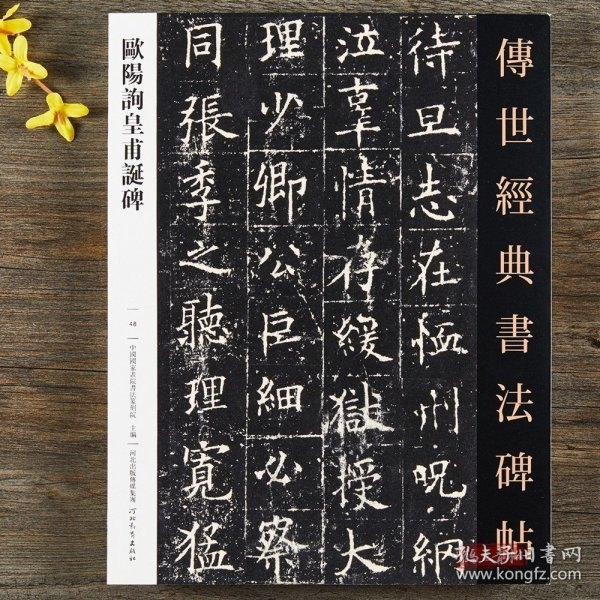 傳世經典書法碑帖
待旦志在恤刑呪網
泣辜情存緩獄授大
理少卿公巨細必察
同張季之聽理寬猛
歐陽詢皇甫誕碑
48
中國國家畫院書法篆刻院 主編
河北出版傳媒集團
河北教育出版社
孔夫子旧书网
www.kongfz.com